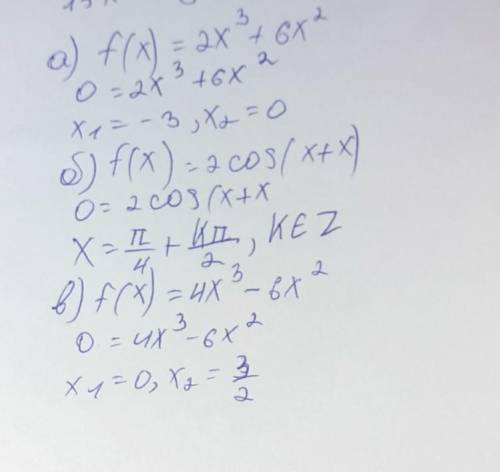 а) f(x) = 2x³ + 6x²
0 = 2x³ + 6x²
x₁ = -3, x₂ = 0
б) f(x) = 2 cos(x+x)
0 = 2 cos(x+x
x = π/4 + kπ/2, k ∈ Z
в) f(x) = 4x³ - 6x²
0 = 4x³ - 6x²
x₁ = 0, x₂ = 3/2